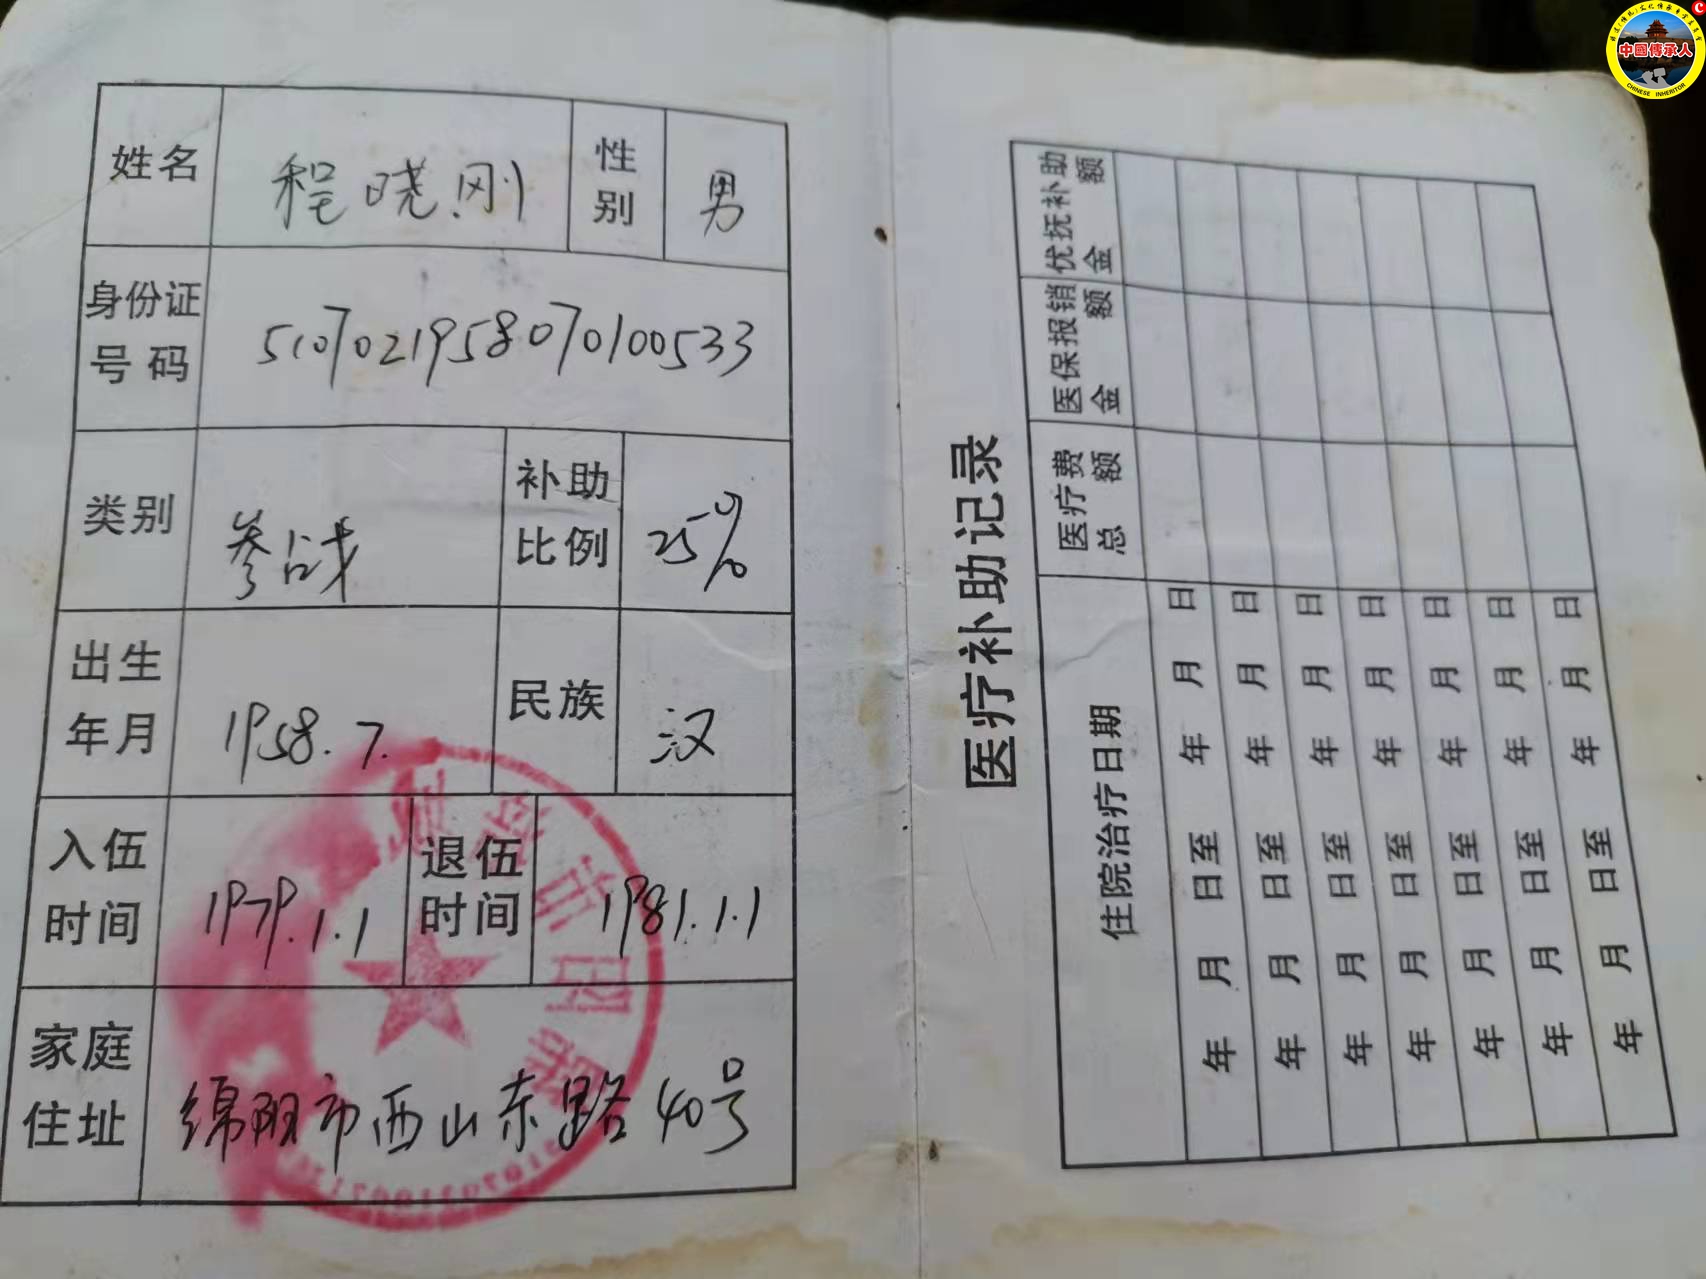 姓名 程晓刚 性别 男
身份证号码 510702195807010533
类别 参战 补助比例 25%
出生年月 1958.7. 民族 汉
入伍时间 1979.1.1 退伍时间 1981.1.1
家庭住址 绵阳市西山东路40号
医疗补助记录
住院治疗日期 医疗费总额 医保报销金额 优抚补助金额
年 月 日至 年 月 日
年 月 日至 年 月 日
年 月 日至 年 月 日
年 月 日至 年 月 日
年 月 日至 年 月 日
年 月 日至 年 月 日
年 月 日至 年 月 日
中國傳承人
CHINESE INHERITOR